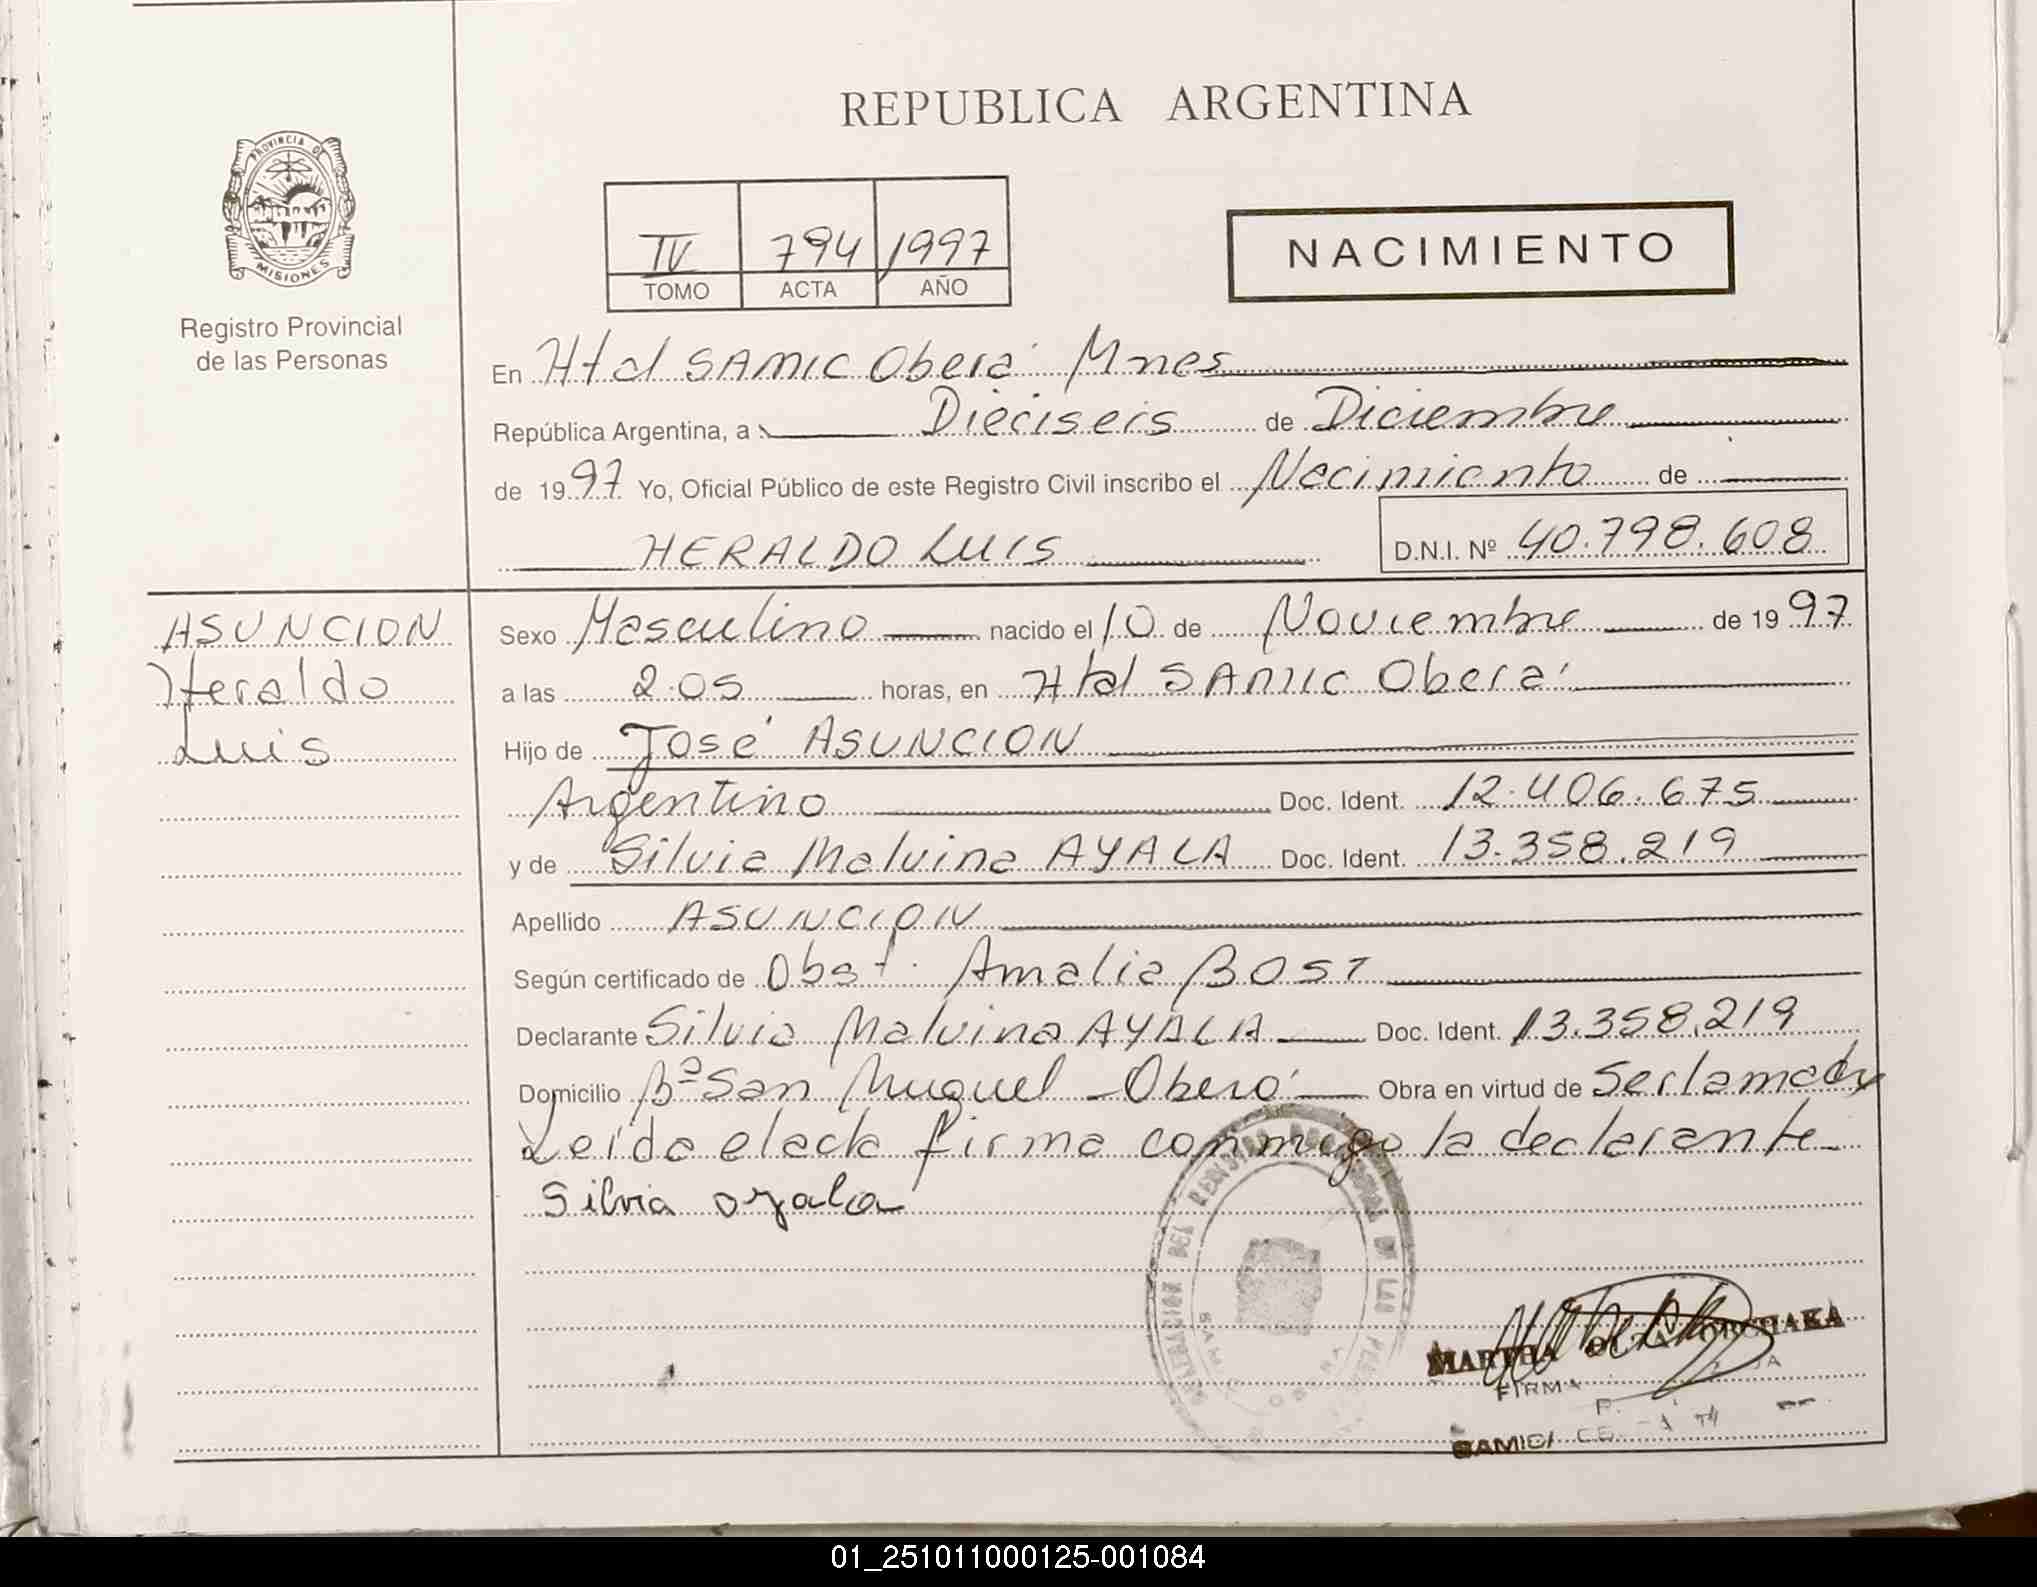 REPUBLICA ARGENTINA
PROVINCIA DE
MISIONES
Registro Provincial
de las Personas
IV 794 1997
TOMO ACTA AÑO
NACIMIENTO
En Htal SAMIC Oberá Mnes
República Argentina, a Dieciseis de Diciembre
de 1997 Yo, Oficial Público de este Registro Civil inscribo el Nacimiento de
HERALDO LUIS D.N.I. Nº 40.798.608
ASUNCION
Heraldo
Luis
Sexo Masculino nacido el 10 de Noviembre de 1997
a las 2:05 horas, en Htal SAMIC Oberá
Hijo de José ASUNCION
Argentino Doc. Ident. 12.406.675
y de Silvia Malvina AYALA Doc. Ident. 13.358.219
Apellido ASUNCION
Según certificado de Obst. Amalia BOST
Declarante Silvia Malvina AYALA Doc. Ident. 13.358.219
Domicilio Bº San Miguel - Oberá Obra en virtud de Ser la madre
Leída el acta firma conmigo la declarante
Silvia ayala
DELEGACION DEL REGISTRO PROVINCIAL DE LAS
MARTHA
FIRMA
SAMIC
01_251011000125-001084